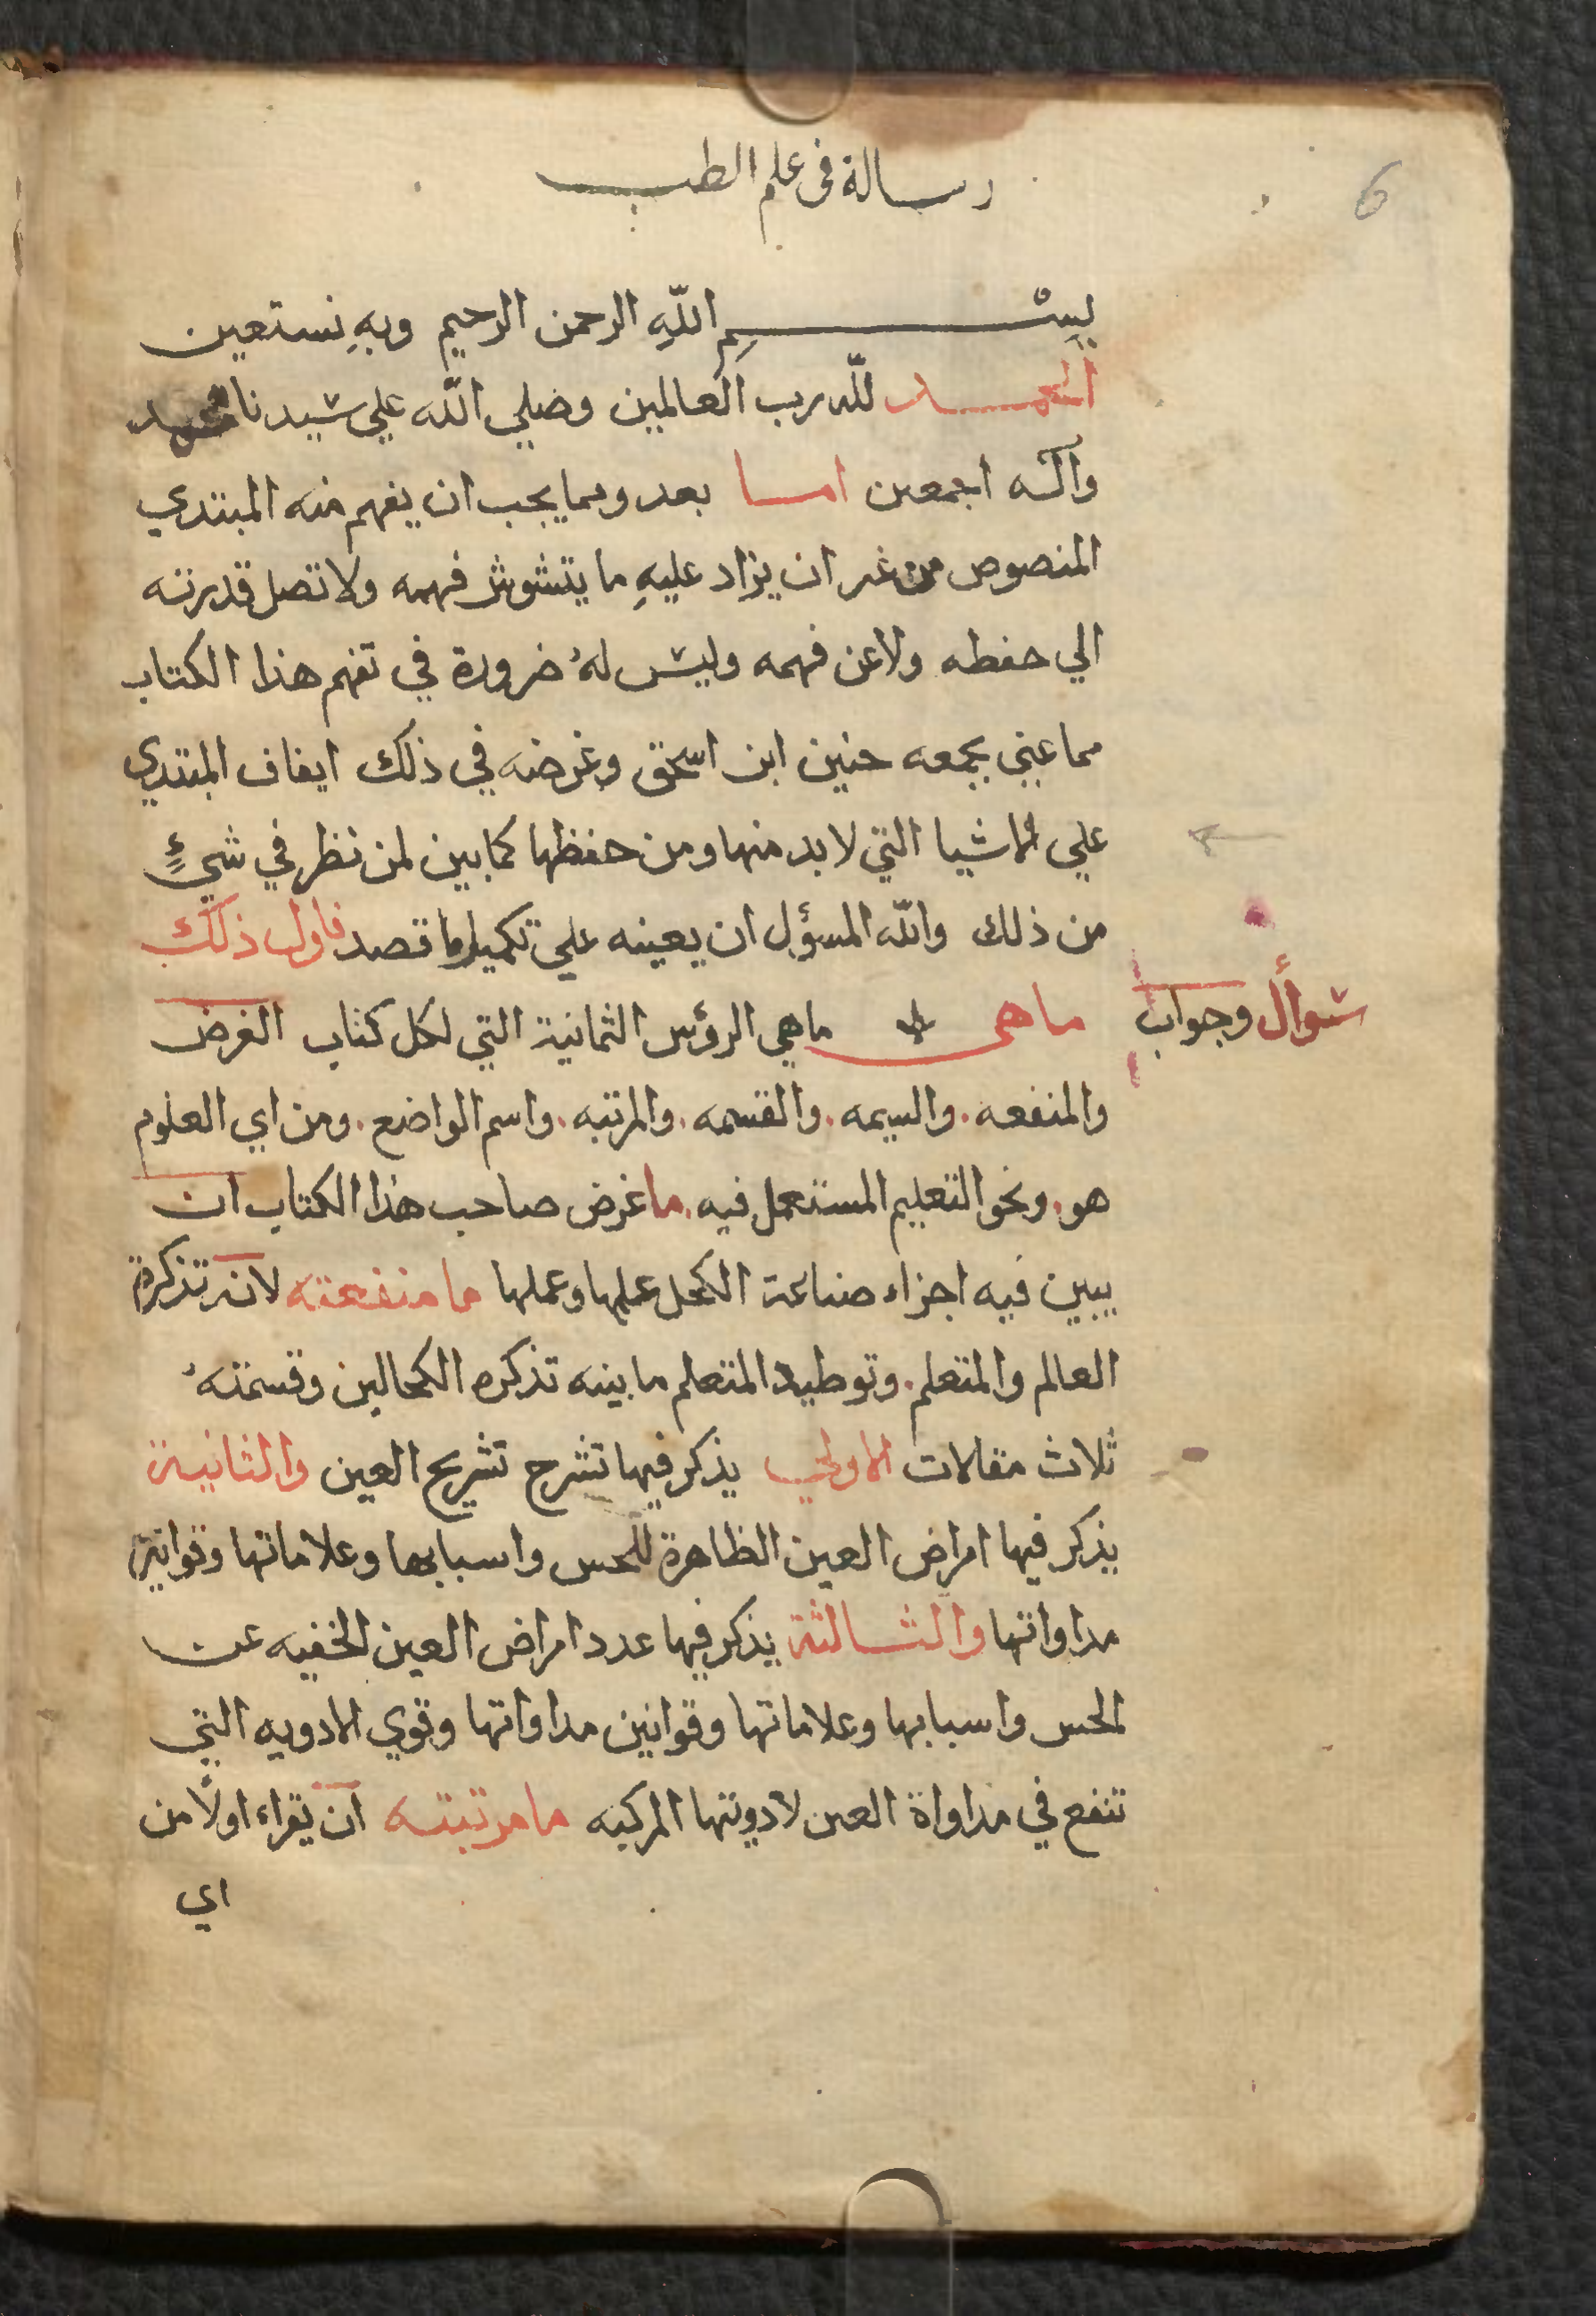 رسالة فى علم الطب
6
بسم اللّهِ الرحمن الرحيم وبهِ نستعين
الحمد للّه رب العالمين وصلي اللّه علي سيدنا محمد
وآله اجمعين اما بعد ومما يجب ان يفهم منه المبتدي
المنصوص من غير ان يزاد عليهِ ما يتشوش فهمه ولا تصل قدرته
الي حفظه ولا عن فهمه وليس لهُ ضرورة في تفهم هذا الكتاب
مما عني بجمعه حنين ابن اسحق وغرضه في ذلك ايقاف المبتدي
علي الاشيا التي لا بد منها ومن حفظها كما بين لمن نظر في شيءٍ
من ذلك واللّه المسؤل ان يعينه علي تكميل ما قصد فاول ذلك
سوأل وجواب
ماهى ماهي الرؤس الثمانية التي لكل كتاب الغرض
والمنفعه . والسيمه . والقسمه . والمرتبه . واسم الواضع . ومن اي العلوم
هو . ونحو التعليم المستعمل فيه . ما غرض صاحب هذا الكتاب ان
يبين فيه اجزاء صناعة الكحل علمها وعملها ما منفعته لانه تذكرة
العالم والمتعلم . وتوطيد المتعلم ما بينه تذكره الكحالين وقسمتهُ
ثلاث مقالات الاولي يذكر فيها تشرح تشريح العين والثانية
يذكر فيها امراض العين الظاهرة للحس واسبابها وعلاماتها وقوانين
مداواتها والثالثة يذكر فيها عدد امراض العين الخفيه عن
الحس واسبابها وعلاماتها وقوانين مداواتها وقوي الادويه التي
تنفع في مداواة العين لادويتها المركبه ما مرتبته ان يقراء اولًا من
اي